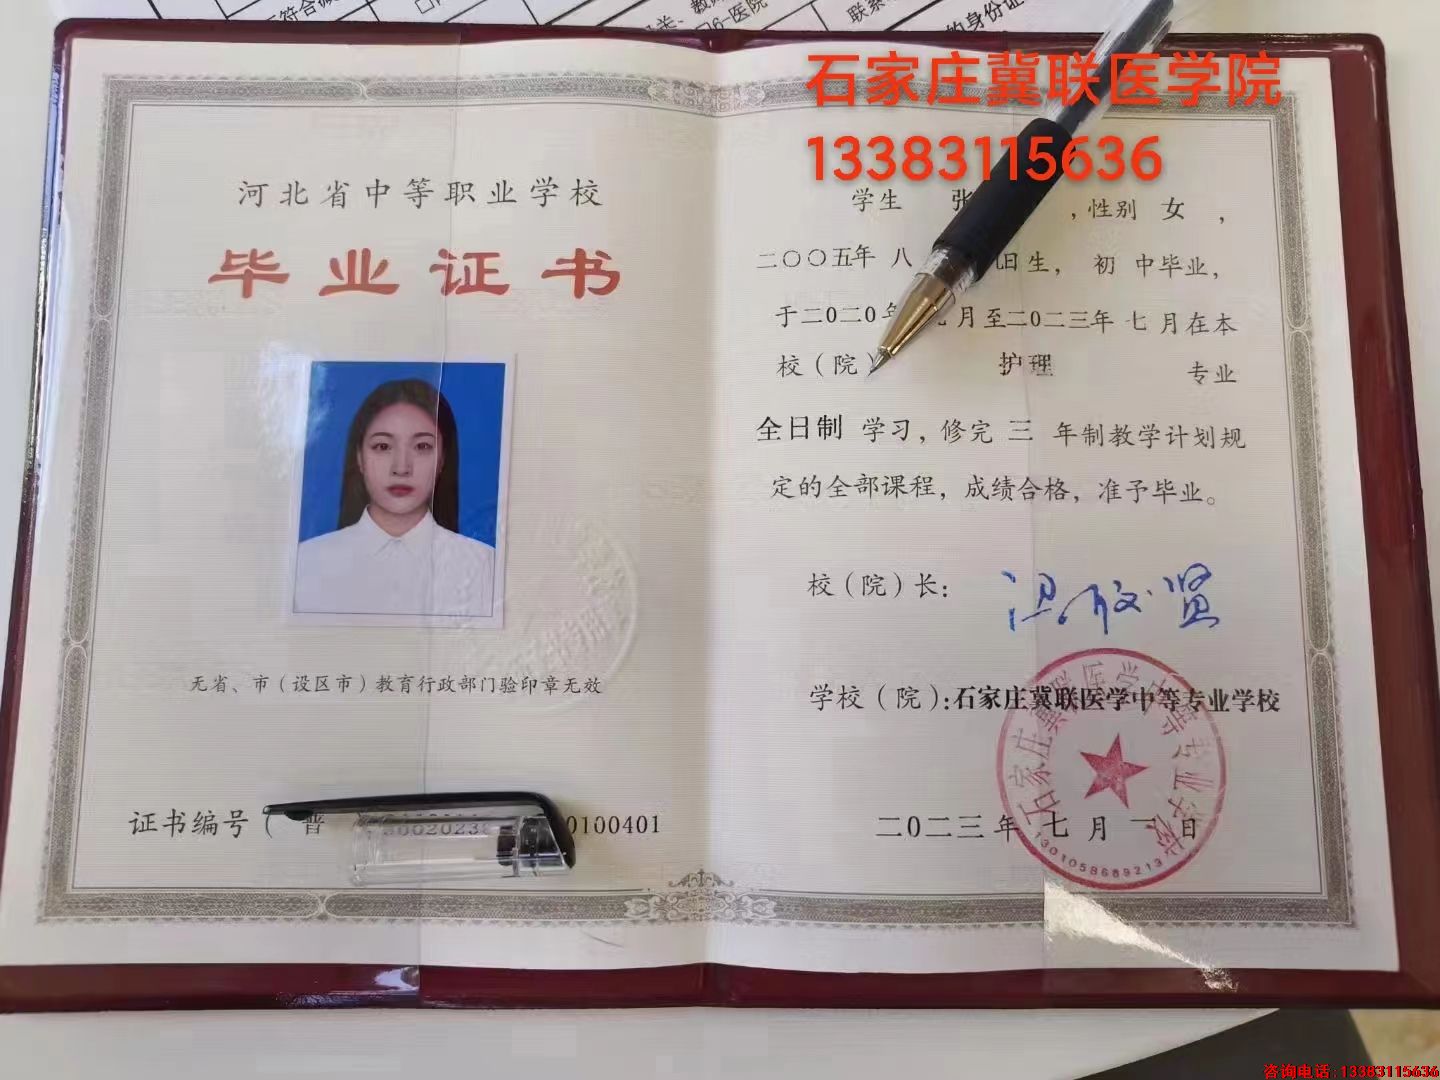 符合
医院
联系
的身份证
石家庄冀联医学院
13383115636
河北省中等职业学校
毕业证书
无省、市（设区市）教育行政部门验印章无效
证书编号（ 普
0100401
学生 张 ，性别 女 ，
二〇〇五年 八 日生， 初 中毕业，
于二0二0年 月至二0二三年 七 月在本
校（院） 护理 专业
全日制 学习，修完 三 年制教学计划规
定的全部课程，成绩合格，准予毕业。
校（院）长：
学校（院）：石家庄冀联医学中等专业学校
二0二三年 七 月 一 日
石家庄冀联医学中等专业学校
1301058689213
咨询电话:13383115636